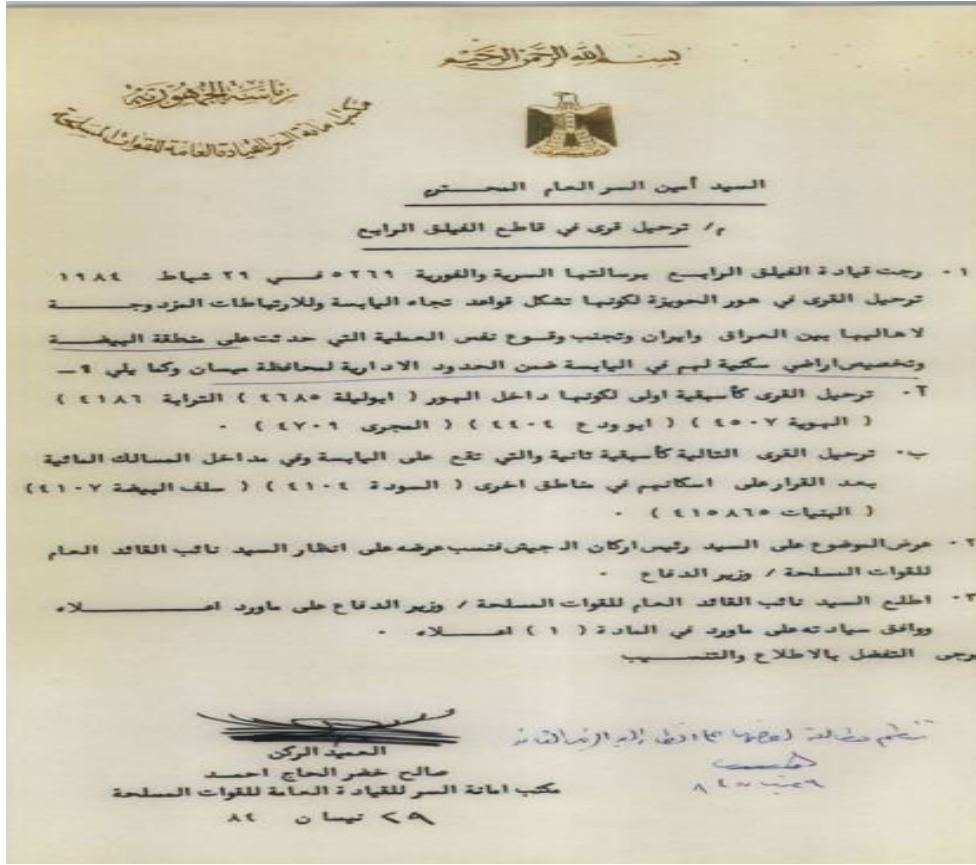 بسم الله الرحمن الرحيم
رئاسة الجمهورية
مكتب أمانة السر للقيادة العامة للقوات المسلحة
السيد أمين السر العام المحترم
م/ ترحيل قرى في قاطع الفيلق الرابع
١- رجت قيادة الفيلق الرابع برسالتها السرية والفورية ٥٢٦٩ في ٢٩ شباط ١٩٨٤
ترحيل القرى في هور الحويزة لكونها تشكل قواعد تجاه اليابسة وللارتباطات المزدوجة
لاهاليها بين العراق وايران وتجنب وقوع نفس العملية التي حدثت على منطقة البيضة
وتخصيص اراضي سكنية لهم في اليابسة ضمن الحدود الادارية لمحافظة ميسان وكما يلي :-
آ- ترحيل القرى كأسبقية اولى لكونها داخل الهور ( ابوليلة ٤٦٨٥ ) الترابة ٤١٨٦ )
( البوية ٤٥٠٧ ) ( ابو ودع ٤٤٠٤ ) ( المجرى ٤٧٠٩ ) ٠
ب- ترحيل القرى التالية كأسبقية ثانية والتي تقع على اليابسة وفي مداخل المسالك المائية
بعد القرار على اسكانهم في مناطق اخرى ( السودة ٤١٠٤ ) ( سلف البيضة ٤١٠٧ )
( البنيات ٤١٥٨٦٥ ) ٠
٢- عرض الموضوع على السيد رئيس اركان الجيش فنسب عرضه على انظار السيد نائب القائد العام
للقوات المسلحة / وزير الدفاع ٠
٣- اطلع السيد نائب القائد العام للقوات المسلحة / وزير الدفاع على ماورد اعلاه
ووافق سيادته على ماورد في المادة ( ١ ) اعلاه ٠
يرجى التفضل بالاطلاع والتنسيب
العميد الركن
صالح خضر الحاج احمد
مكتب امانة السر للقيادة العامة للقوات المسلحة
٢٩ نيسان ٨٤